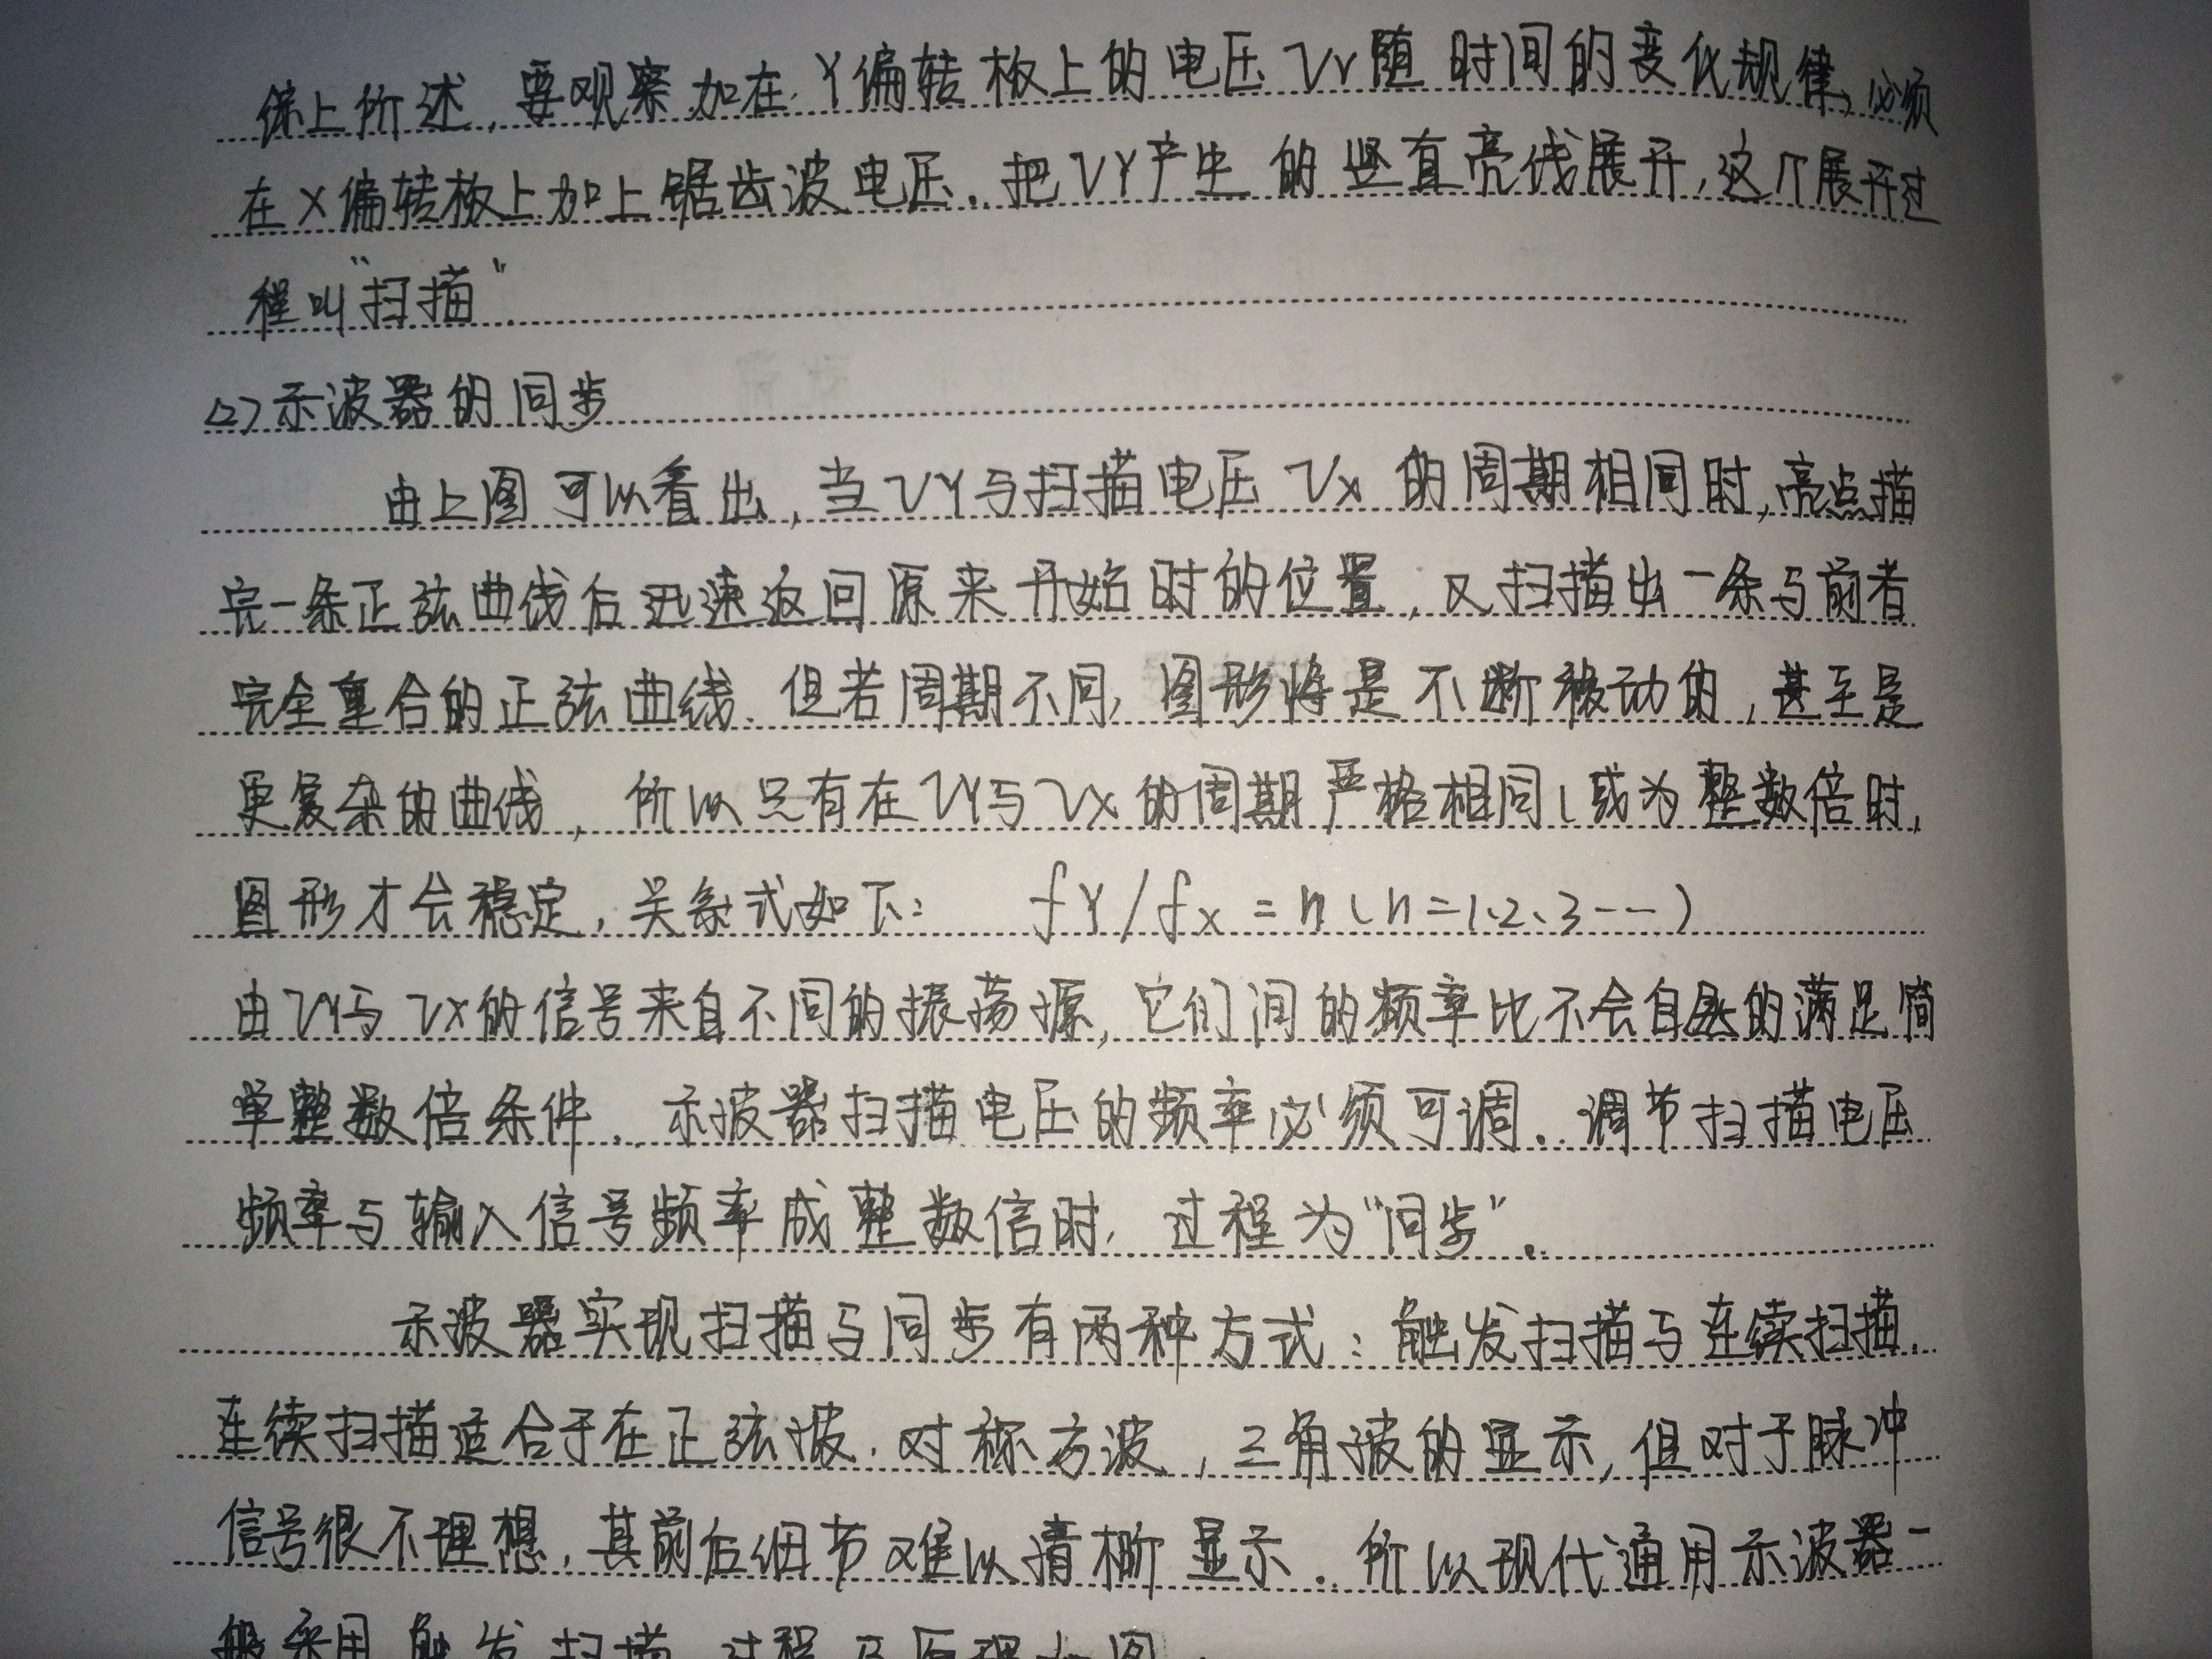 综上所述,要观察加在Y偏转板上的电压VY随时间的变化规律,必须
在X偏转板上加上锯齿波电压.把VY产生的竖直亮线展开,这个展开过
程叫“扫描”.
(2)示波器的同步
由上图可以看出,当VY与扫描电压Vx的周期相同时,亮点描
完一条正弦曲线后迅速返回原来开始时的位置,又扫描出一条与前者
完全重合的正弦曲线.但若周期不同,图形将是不断移动的,甚至是
更复杂的曲线,所以只有在VY与VX的周期严格相同(或为整数倍时,
图形才会稳定,关系式如下: fY/fx=n(n=1、2、3--)
由VY与VX的信号来自不同的振荡源,它们间的频率比不会自然的满足简
单整数倍条件.示波器扫描电压的频率必须可调.调节扫描电压
频率与输入信号频率成整数倍时,过程为“同步”.
示波器实现扫描与同步有两种方式:触发扫描与连续扫描.
连续扫描适合于在正弦波.对称方波,三角波的显示,但对于脉冲
信号很不理想,其前后细节难以清晰显示.所以现代通用示波器一
般采用触发扫描.过程及原理如图.